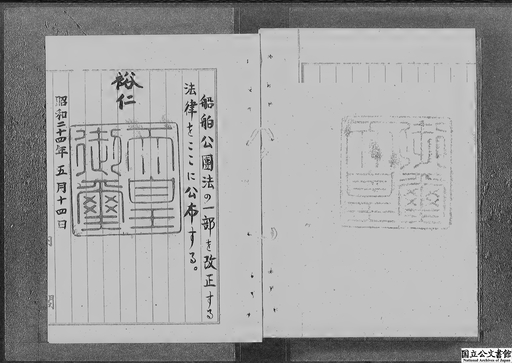 船舶公團法の一部を改正する
法律をここに公布する。
裕仁
天皇
御璽
昭和二十四年五月十四日
国立公文書館
National Archives of Japan